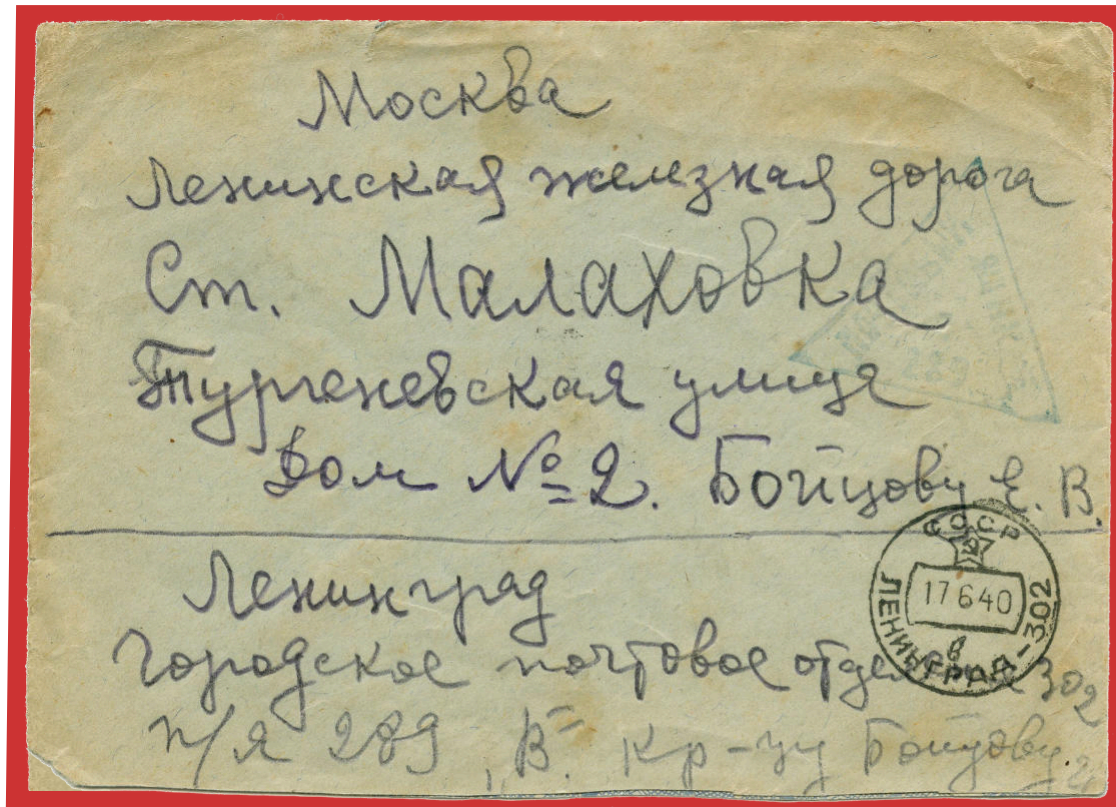 Москва
Ленинская железная дорога
Ст. Малаховка
Тургеневская улица
Дом № 2. Бойцову Е. В.
Ленинград
Городское почтовое отделение 302
п/я 289, "В" кр-цу Бойцову
СССР
17 6 40
в
ЛЕНИНГРАД-302